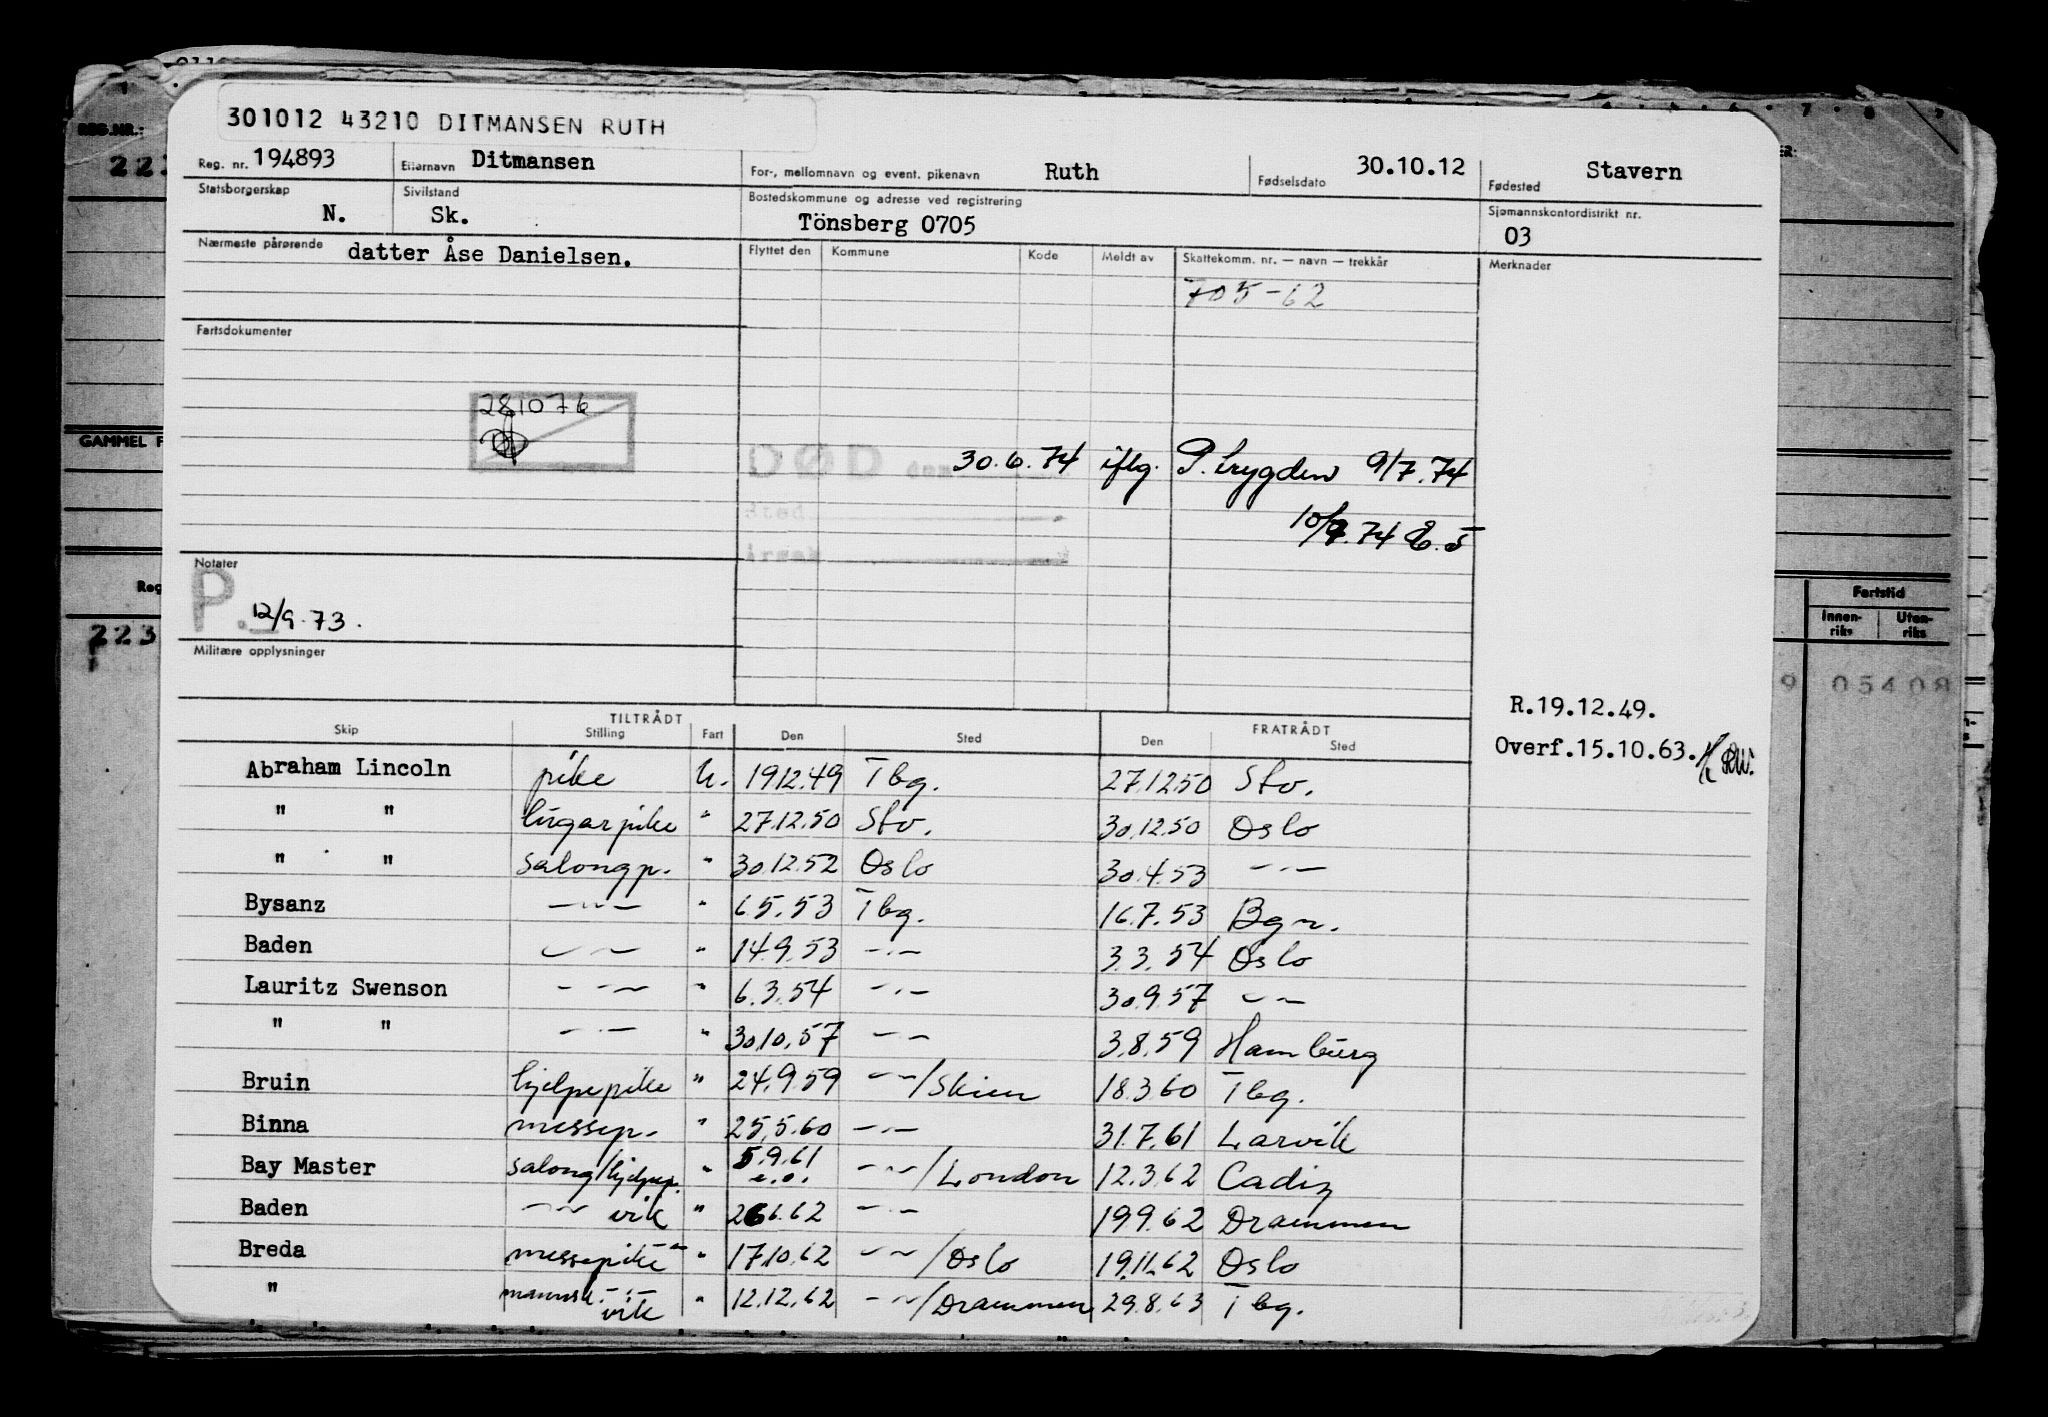 301012 43210 DITMANSEN RUTH
Reg. nr. 194893 Etternavn Ditmansen For-, mellomnavn og event. pikenavn Ruth Fødselsdato 30.10.12 Fødested Stavern
Statsborgerskap N. Sivilstand Sk. Bostedskommune og adresse ved registrering Tönsberg 0705 Sjømannskontordistrikt nr. 03
Nærmeste pårørende datter Åse Danielsen. Flyttet den Kommune Kode Meldt av Skattekomm. nr. — navn — trekkår Merknader
705-62
Fartsdokumenter
281076
DØD
DØD den 30.6.74 iflg. P. trygden 9/7.74
Sted
10/7.74
Årsak
Notater
P. 12/9.73.
Militære opplysninger
R.19.12.49.
Overf.15.10.63.
TILTRÅDT FRATRÅDT
Skip Stilling Fart Den Sted Den Sted
Abraham Lincoln pike U. 19.12.49 Tbg. 27.12.50 Stv.
" " lugarpike " 27.12.50 Stv. 30.12.50 Oslo
" " salongp. " 30.12.52 Oslo 30.4.53 -"-
Bysanz -"- " 6.5.53 Tbg. 16.7.53 Bgn.
Baden -"- " 14.9.53 -"- 3.3.54 Oslo
Lauritz Swenson -"- " 6.3.54 -"- 30.9.57 -"-
" " -"- " 30.10.57 -"- 3.8.59 Hamburg
Bruin hjelpepike " 24.9.59 -"-/Skien 18.3.60 Tbg.
Binna messep. " 25.5.60 -"- 31.7.61 Larvik
Bay Master salong/hjelpep. " 5.9.61 e.o. -"-/London 12.3.62 Cadiz
Baden -"- vik " 26.6.62 -"- 19.9.62 Drammen
Breda messepike " 17.10.62 -"-/Oslo 19.11.62 Oslo
" -"- vik " 12.12.62 -"-/Drammen 29.8.63 Tbg.
REG.NR.:
223
GAMMEL F
Reg
223
Fartstid
Innen-riks Uten-riks
9 05408